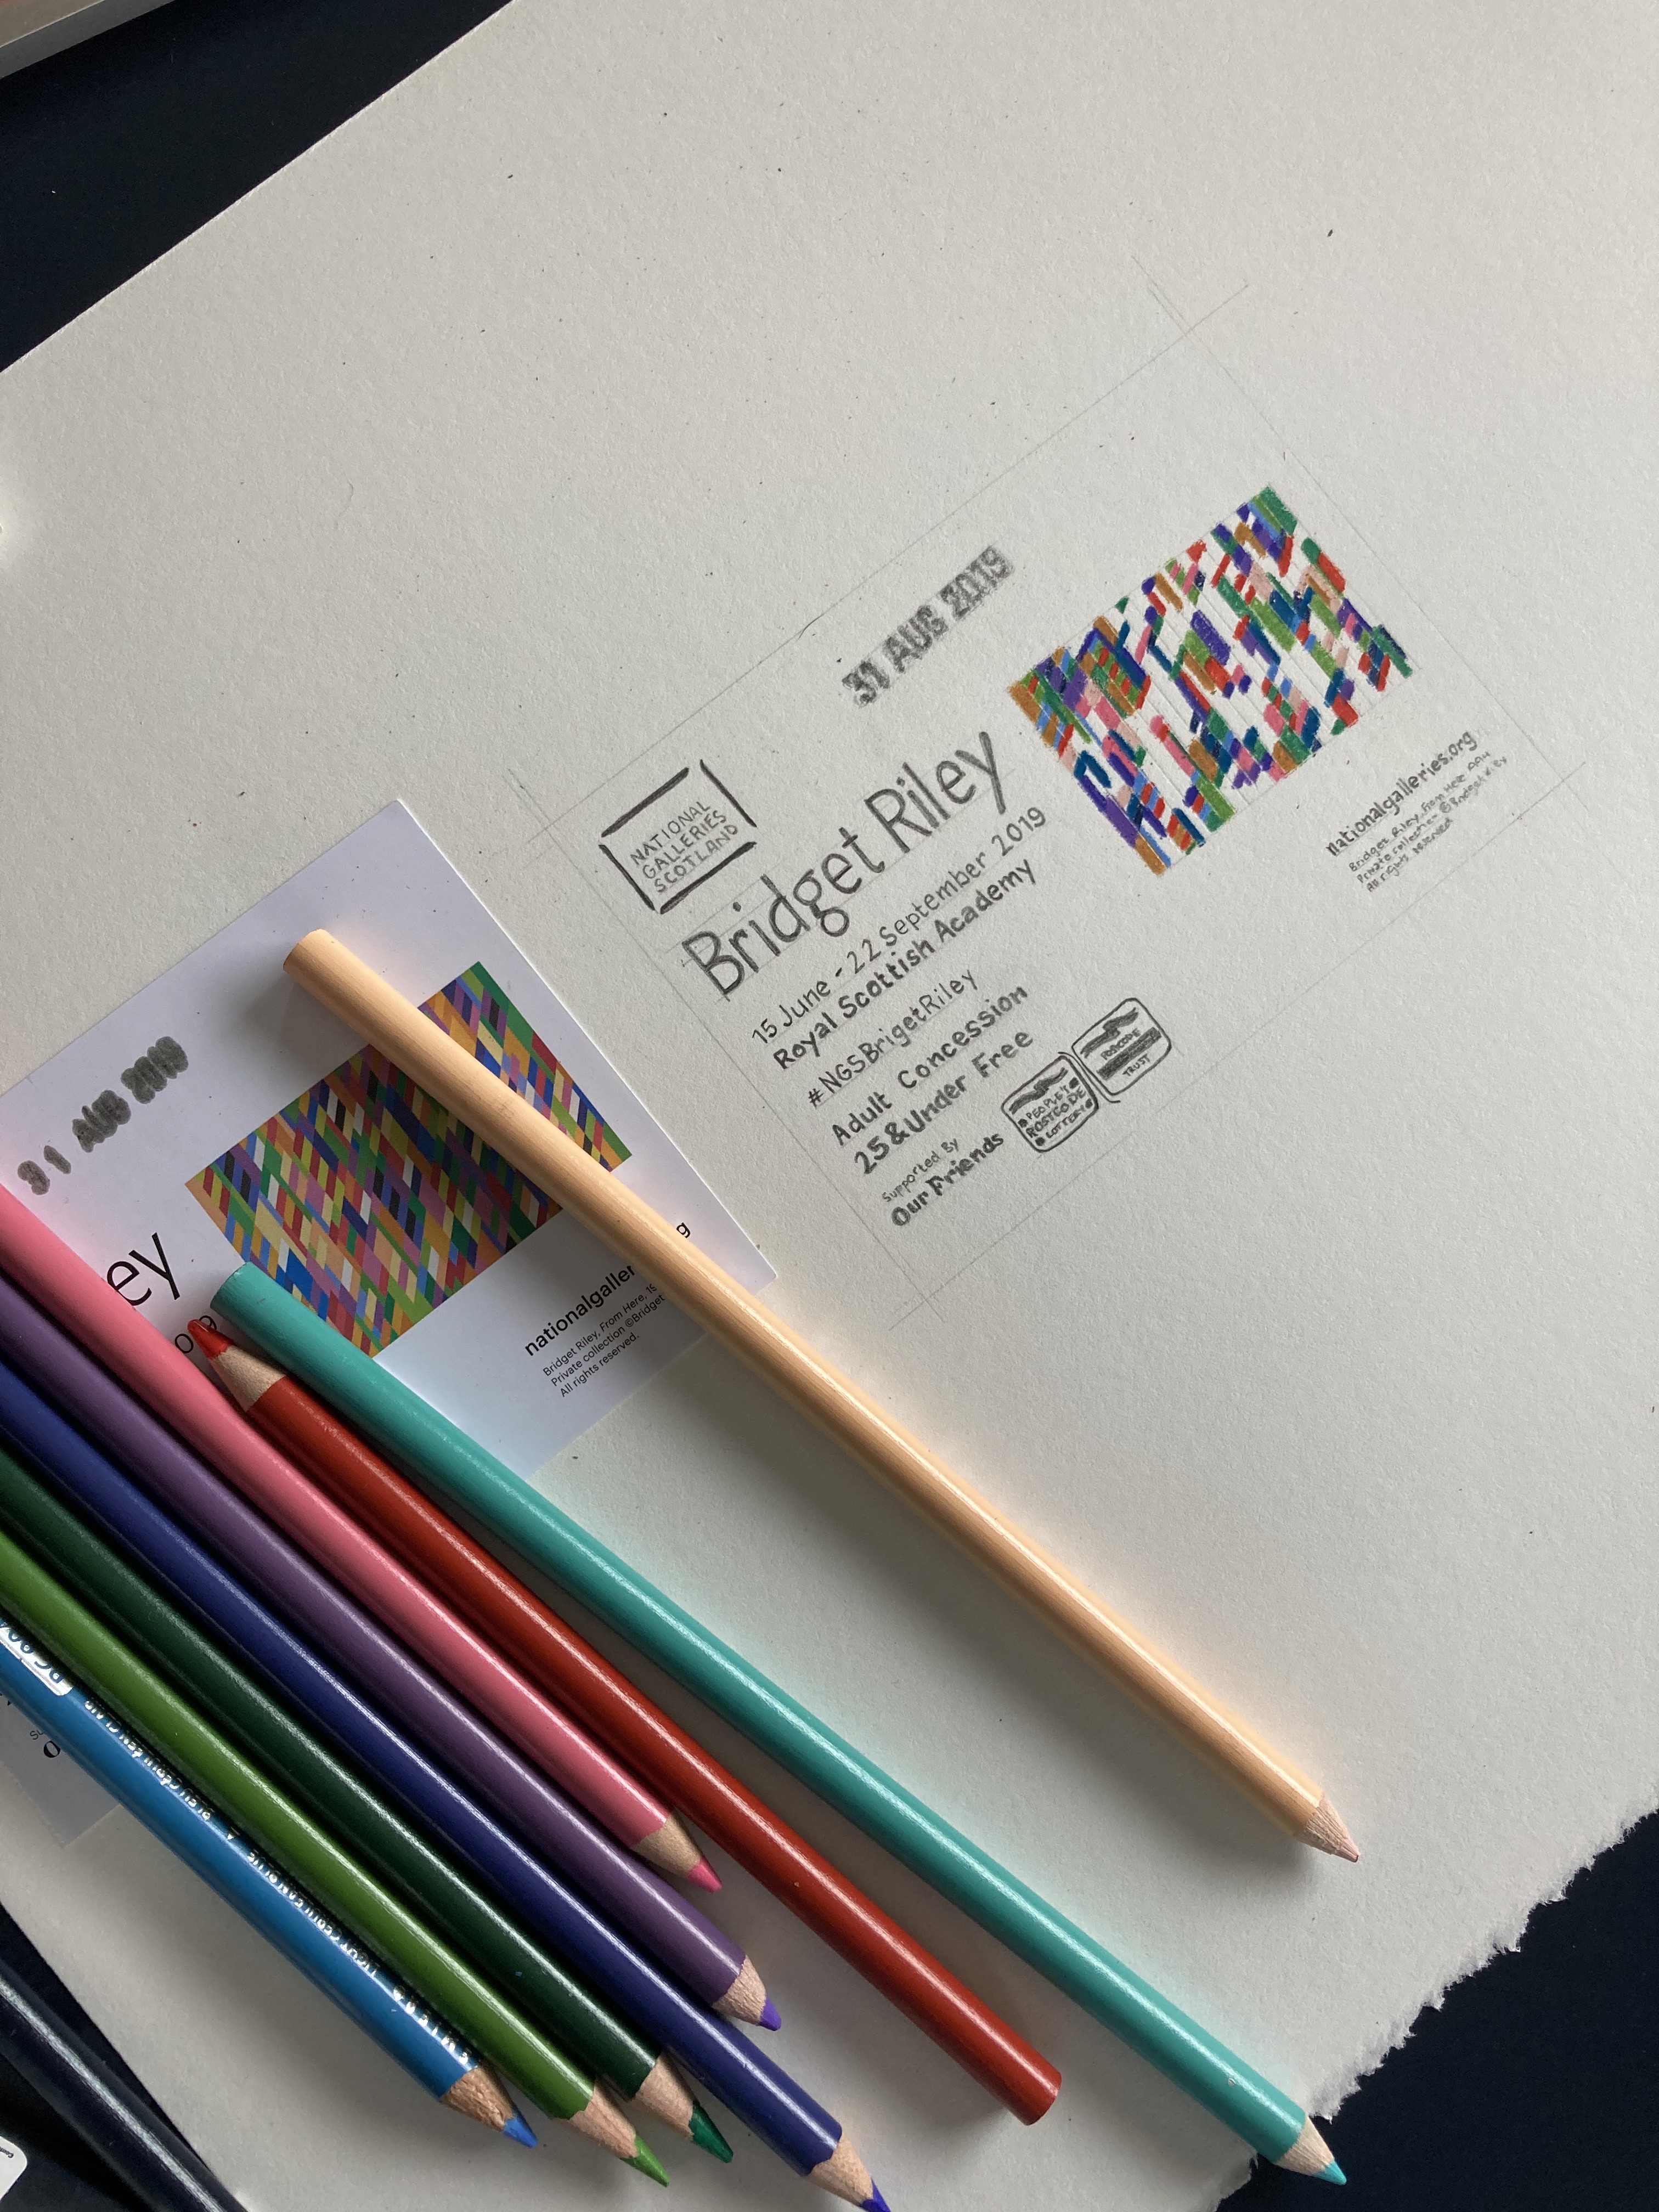 31 AUG 2019
NATIONAL
GALLERIES
SCOTLAND
Bridget Riley
15 June - 22 September 2019
Royal Scottish Academy
#NGSBrigetRiley
Adult Concession
25 & Under Free
Supported By
Our Friends
PEOPLE'S
POSTCODE
LOTTERY
POSTCODE
TRUST
nationalgalleries.org
Bridget Riley, From Here
Private collection © Bridget Riley
All rights reserved
31 AUG 2019
ey
019
nationalgaller
g
Bridget Riley, From Here, 19
Private collection ©Bridget
All rights reserved.